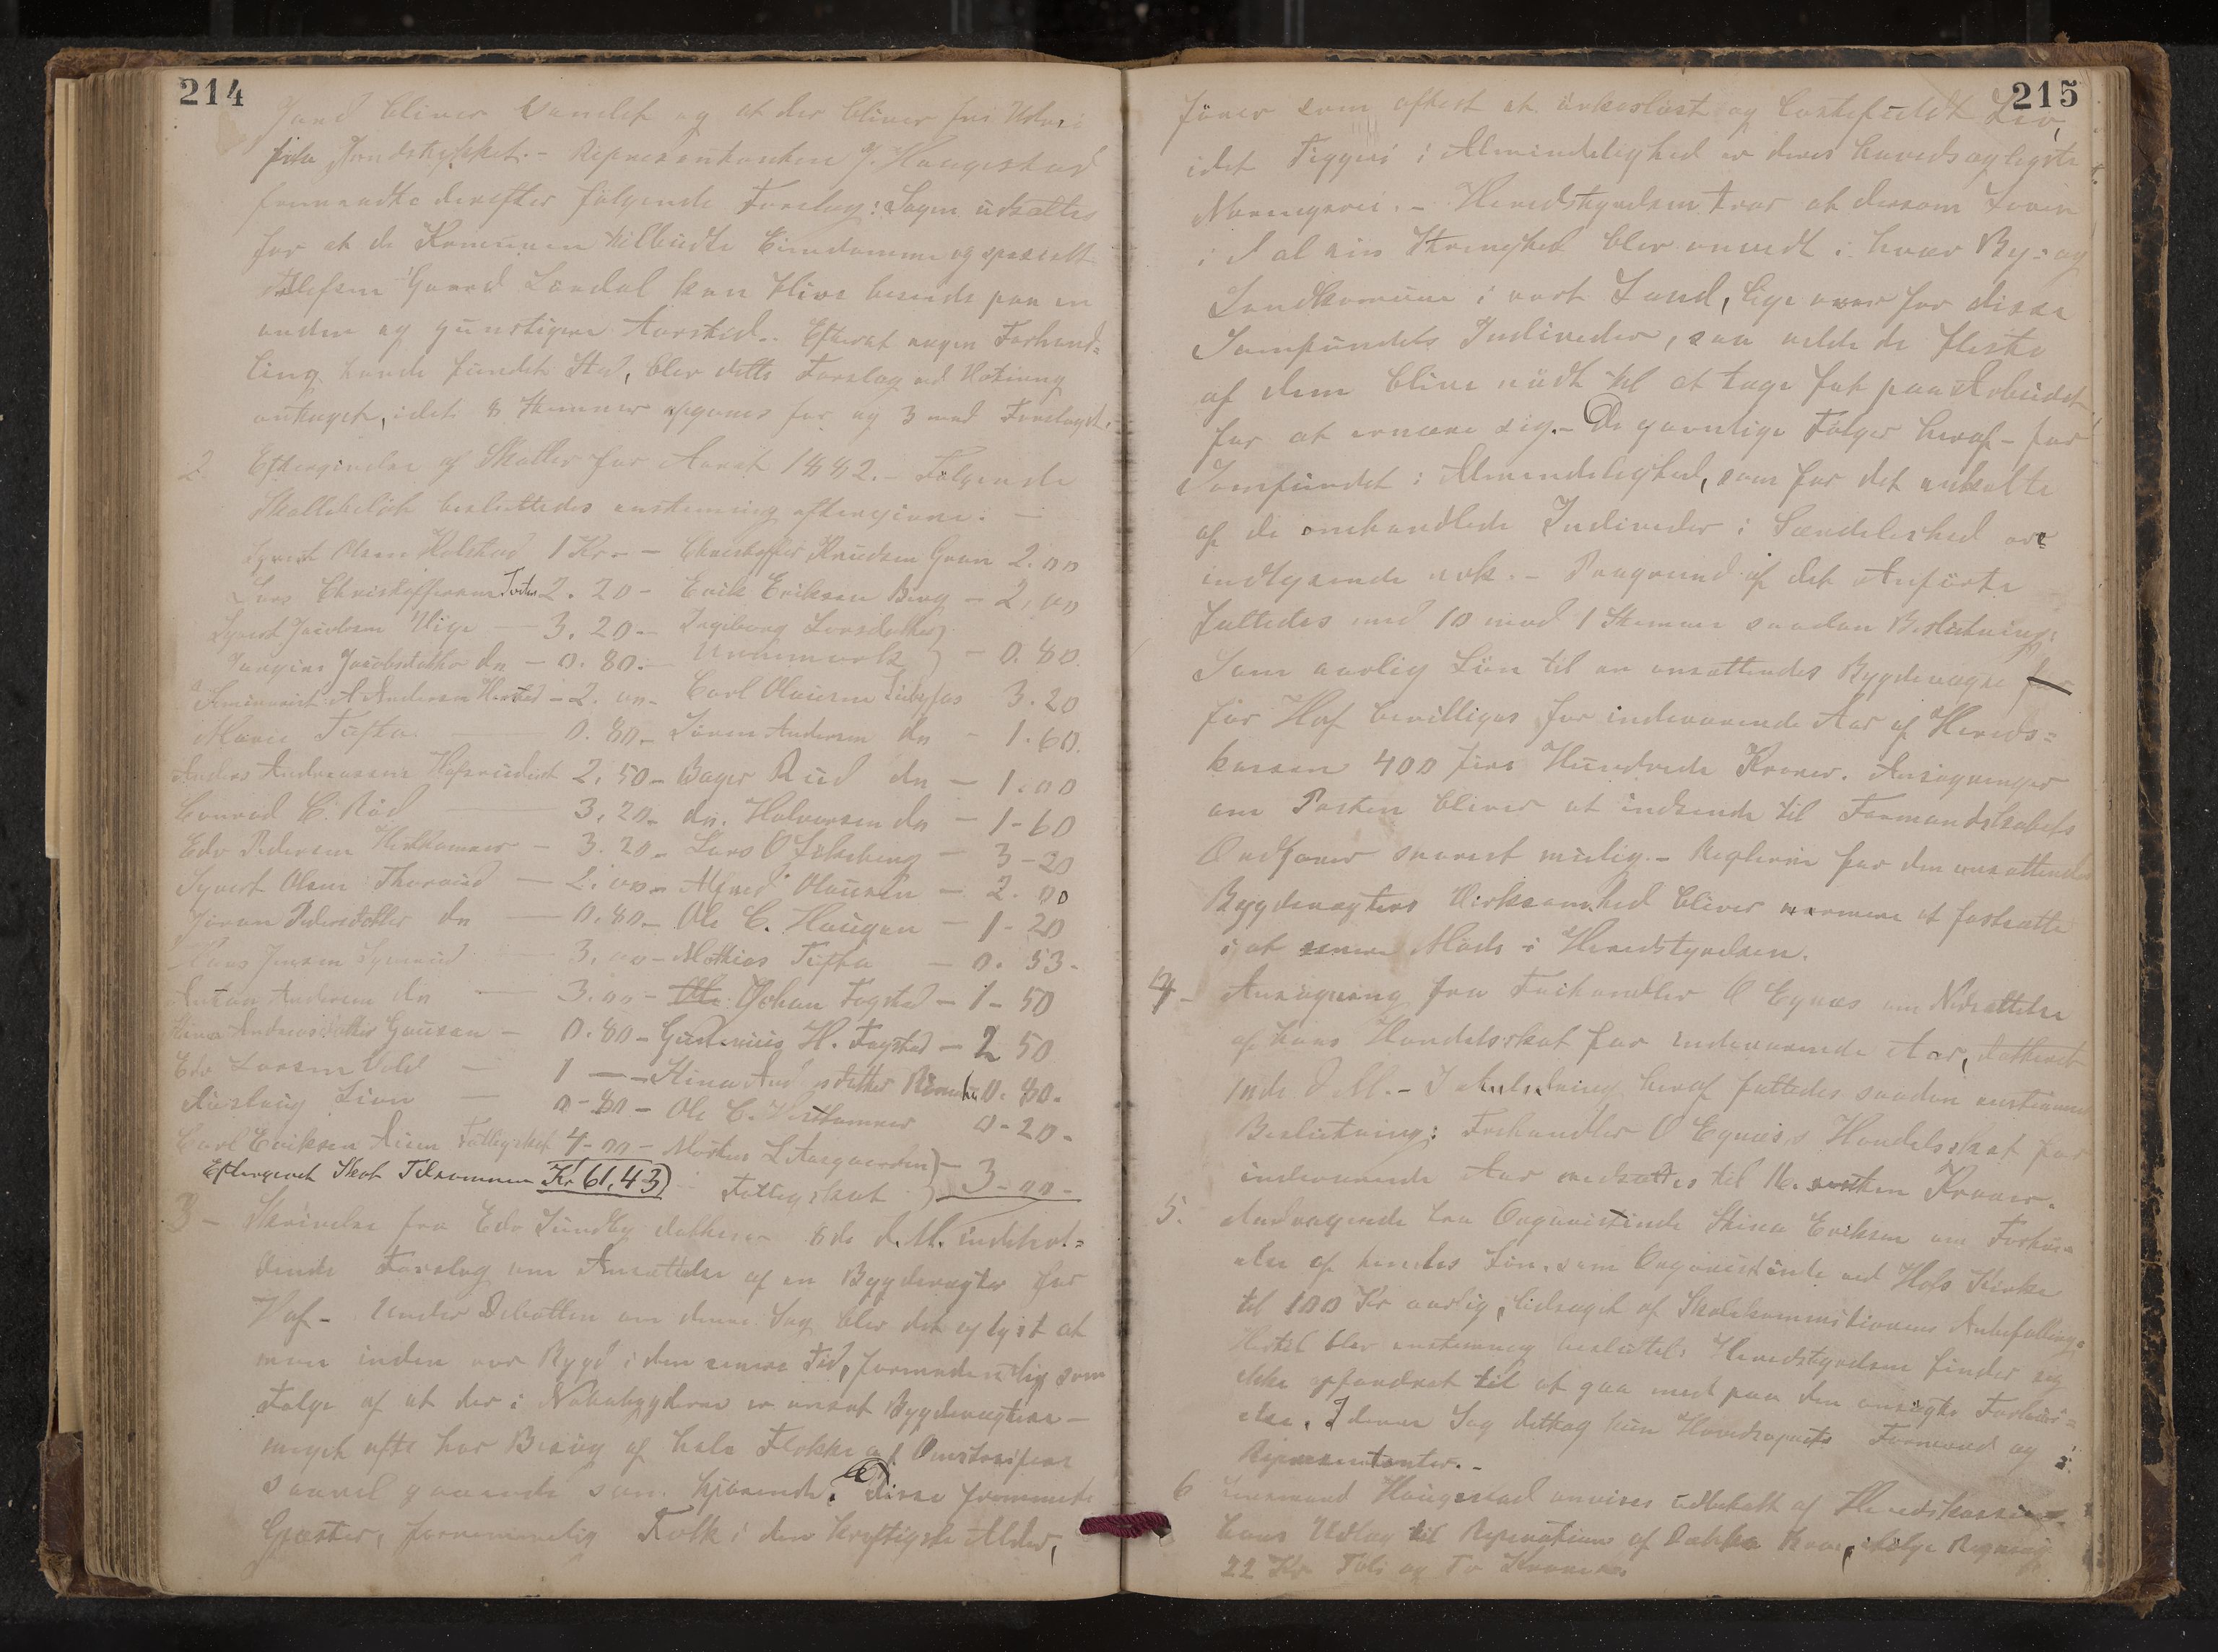 214
Jord bliver vandet og at der bliver fri Udvei
fra Jordstykket. - Repræsentanten J. Haugestad
fremsadte derefter følgende Forslag: Sagen udsættes
for at de Kommunen tilbudte Eiendomme og specielt
Gaard Løvdal kan blive beseede paa en
anden og gunstigere Aarstid. Efterat nogen Forhand=
ling havde fundet Sted, blev dette Forslag ved Votering
antaget, idet 8 Stemmer afgaves for og 3 mod Forslaget.
2. Eftergivelse af Skatter for Aaret 1882. - Følgende
Skattebeløb besluttedes enstemmig eftergivne. -
Syvert Olsen Holstad 1 Kr. - - Christoffer Knudsen Gran 2.00
Lars Christoffersen 2.20 - Erik Eriksen Berg - 2,00
Syvert Jacobsen - 3.20 - Ingeborg Larsdatter
Jacobsdatter do - 0.80 - - 0.80.
A Andersen - 2.00 - Carl Olausen 3.20
Marie Tufta - 0.80 - Søren Andersen do - 1.60.
Anders Andreassen 2,50 - Bager Ruud do - 1.00
Conrad C. Rød - 3,20 - do. Halvorsen do - 1-60
Edv Pedersen - 3.20 - Lars O - 3-20
Syvert Olsen Thorsrud - 2.00 - Alfred Olausen - 2.00
Jøran Pedersdatter do - 0.80 - Ole C. Haugen - 1-20
Hans Jensen - 3,00 - Mathias Tufta - 0.53 -
Anton Andersen do - 3.00 - Johan Fogstad - 1-50
Andreasdatter - 0.80 - H. Fogstad - 2 50
Edv Larsen Vold - 1 - - Stina 0.80.
Lien - 0-80 - Ole C. 0-20 -
Carl Eriksen Fattigskat 4-00 - Morten L Aasgaarden) - 3-00 -
Eftergivet Skat Tilsammen Kr 61,43) Fattigskat
3 - Skrivelse fra Edv Sundby datheret 8de d. M. indehol=
dende Forslag om Ansættelse af en Bygdevægter for
Hof - Under Debatten om denne Sag blev det oplyst at
man inden vor Bygd i den senere Tid, formodentlig som
Følge af at der i Nabobygderne er ansat Bygdevægtere -
meget ofte har Besøg af hele Flokke af Omstreifere
saavel gaaende som kjørende. disse fremmede
Gjæster, fornemmelig Folk i den kraftigste Alder,
215
fører som oftest et ørkesløst og lastefuldt Liv,
idet Tiggeri i Almindelighed er deres hovedsagligste
Næringsvei. - Heredstyrelsen tror at dersom Loven
i al sin Strenghed blev anvendt i hver By= og
Landkomune i vort Land, lige over for disse
Samfundets Individer, saa vilde de fleste
af dem blive nødt til at tage fat paa Arbeidet
for at ernære sig. - De gavnlige Følger heraf - for
Samfundet i Almindelighed, som for det enkelte
af de omhandlede Individer i Særdeleshed ere
indlysende nok. - Paagrund af det Anførte
fattedes med 10 mod 1 Stemme saadan Beslutning:
Som aarlig Løn til en ansættendes Bygdevægter
for Hof bevilliges for indeværende Aar af Hereds=
kassen 400 fire Hundrede Kroner. Ansøgninger
om Posten bliver at indsende til Formandskabets
Ordfører snarest mulig. - Reglerne for den ansættendes
Bygdevægters Virksomhed bliver nærmere at fastsætte
i et senere Møde i Heredstyrelsen.
4 - Ansøgning fra Fæhandler O Eynæs om Nedsættelse
af hans Handelsskat for indeværende Aar, datheret
10de d. M. - I Anledning heraf fattedes saadan enstemmig
Beslutning: Fæhandler O Eynæs's Handelsskat for
indeværende Aar nedsættes til 16. sexten Kroner.
5. Andragende fra Organistinde Stina Eriksen om Forhøi=
else af hendes Løn som Organistinde ved Hofs Kirke
til 100 Kr aarlig, ledsaget af Skolekommisionens Anbefaling.
blev enstemmig besluttet: Heredstyrelsen finder sig
ikke opfordret til at gaa med paa den ansøgte Forhøi=
else. I denne Sag deltog kun Hovedsognets Formænd og
Repræsentanter. -
6 Formand Haugestad anvises udbetalt af Heredskassen
hans Udlag til Reperation af Bro, ifølge Regning
22 Kr Toti og To Kroner.